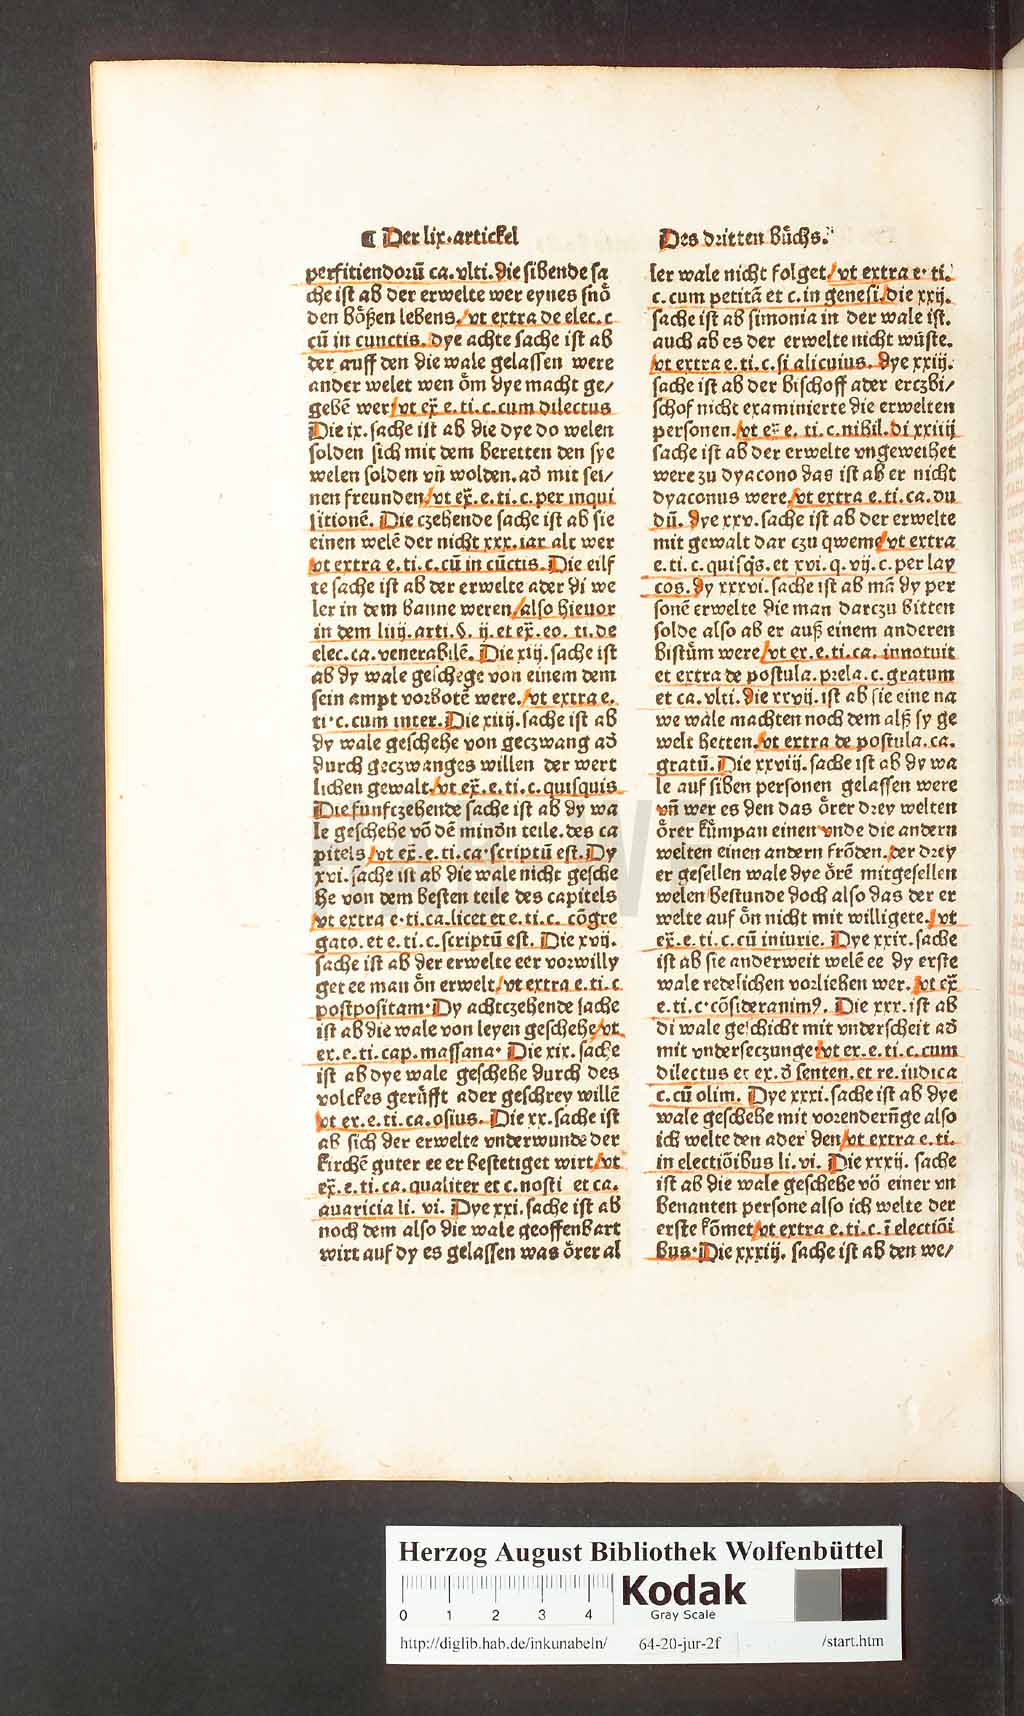 ¶ Der lix. artickel
perfitiendorū ca. vlti. die sibende sa
che ist ab der erwelte wer eynes snö
den bößen lebens. / vt extra de elec. c
cū in cunctis. Dye achte sache ist ab
der auff den die wale gelassen were
ander welet wen öm dye macht ge/
gebē wer / vt ex̄. e. ti. c. cum dilectus
Die ix. sache ist ab die dye do welen
solden sich mit dem beretten den sye
welen solden vn̄ wolden. ad̄ mit sei/
nen freunden / vt ex̄. e. ti. c. per inqui
sitionē. Die czehende sache ist ab sie
einen welē der nicht xxx. iar alt wer
vt extra e. ti. c. cū in cūctis. Die eilf
te sache ist ab der erwelte ader di we
ler in dem banne weren / also hieuor
in dem liiij. arti. §. ij. et ex̄. eo. ti. de
elec. ca. venerabilē. Die xiij. sache ist
ab dy wale geschege von einem dem
sein ampt vorbotē were. / vt extra e.
ti. c. cum inter. Die xiiij. sache ist ab
dy wale geschehe von geczwang ad̄
durch geczwanges willen der wert
lichen gewalt. / vt ex̄. e. ti. c. quisquis
Die funfczehende sache ist ab dy wa
le geschehe vō dē mindn̄ teile. des ca
pitels / vt ex̄. e. ti. ca. scriptū est. Dy
xvi. sache ist ab die wale nicht gesche
he von dem besten teile des capitels
vt extra e. ti. ca. licet et e. ti. c. cōgre
gato. et e. ti. c. scriptū est. Die xvij.
sache ist ab der erwelte eer vorwilly
get ee man ön erwelt / vt extra e. ti. c
postpositam. Dy achtczehende sache
ist ab die wale von leyen geschehe / vt
ex. e. ti. cap. massana. Die xix. sache
ist ab dye wale geschehe durch des
volckes gerüfft ader geschrey willē
vt ex. e. ti. ca. osius. Die xx. sache ist
ab sich der erwelte vnderwunde der
kirchē guter ee er bestetiget wirt / vt
ex̄. e. ti. ca. qualiter et c. nosti et ca.
auaricia li. vi. Dye xxi. sache ist ab
noch dem also die wale geoffenbart
wirt auf dy es gelassen was örer al
Des dritten bůchs.
ler wale nicht folget / vt extra e. ti.
c. cum petitā et c. in genesi / die xxij.
sache ist ab simonia in der wale ist.
auch ab es der erwelte nicht wüste.
vt extra e. ti. c. si alicuius. Dye xxiij.
sache ist ab der bischoff ader erczbi/
schof nicht examinierte die erwelten
personen. / vt ex̄ e. ti. c. nihil. di xxiiij
sache ist ab der erwelte vngeweihet
were zu dyacono das ist ab er nicht
dyaconus were / vt extra e. ti. ca. du
dū. Dye xxv. sache ist ab der erwelte
mit gewalt dar czu qweme / vt extra
e. ti. c. quisq̄s. et xvi. q. vij. c. per lay
cos. dy xxxvi. sache ist ab mā dy per
sonē erwelte die man darczu bitten
solde also ab er auß einem anderen
bistům were / vt ex. e. ti. ca. innotuit
et extra de postula. prela. c. gratum
et ca. vlti. die xxvij. ist ab sie eine na
we wale machten noch dem alß sy ge
welt hetten. / vt extra de postula. ca.
gratū. Die xxviij. sache ist ab dy wa
le auf siben personen gelassen were
vn̄ wer es den das örer drey welten
örer kůmpan einen vnde die andern
welten einen andern frōden. der drey
er gesellen wale dye örē mitgesellen
welen bestunde doch also das der er
welte auf ön nicht mit willigete. / vt
ex̄. e. ti. c. cū iniurie. Dye xxix. sache
ist ab sie anderweit welē ee dy erste
wale redelichen vorlieben wer. / vt ex̄
e. ti. c. cōsideranimꝰ. Die xxx. ist ab
di wale geschicht mit vnderscheit ad̄
mit vnderseczunge. / vt ex. e. ti. c. cum
dilectus et ex. d̄ senten. et re. iudica
c. cū olim. Dye xxxi. sache ist ab dye
wale geschehe mit vorendern̄ge also
ich welte den ader den / vt extra e. ti.
in electiōibus li. vi. Die xxxij. sache
ist ab die wale geschehe vō einer vn
benanten persone also ich welte der
erste kōmet / vt extra e. ti. c. ī electiōi
bus. Die xxxiij. sache ist ab den we/
HAB WF
Herzog August Bibliothek Wolfenbüttel
0 1 2 3 4
Kodak
Gray Scale
http://diglib.hab.de/inkunabeln/ 64-20-jur-2f /start.htm